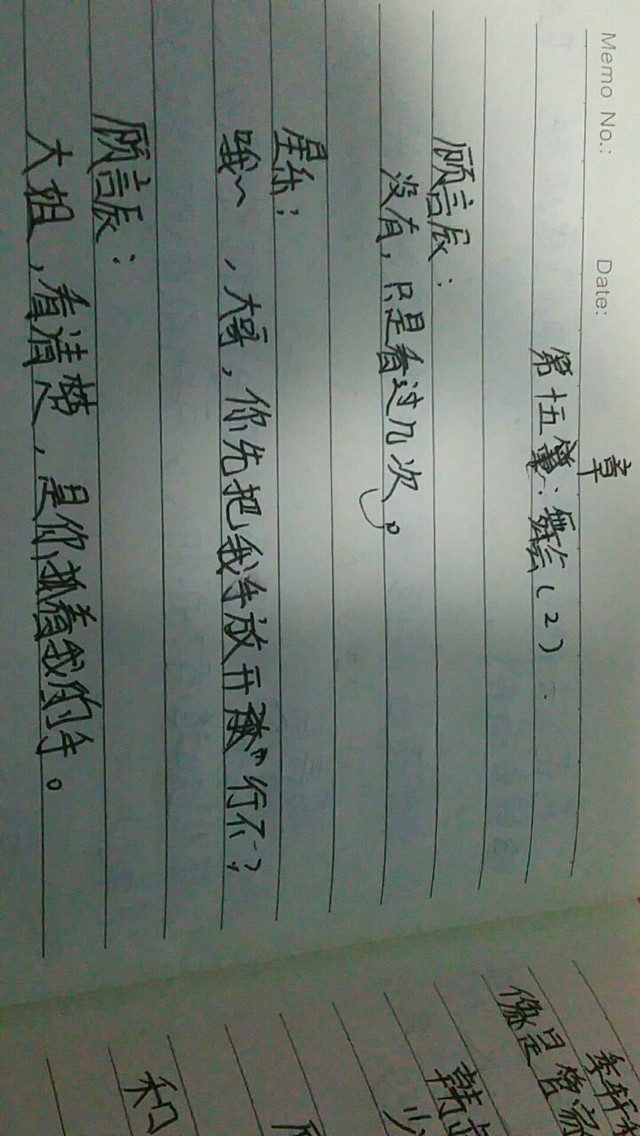 Memo No.:
Date:
章
第十五 : 舞会(2).
顾言辰:
没有,只是看过几次。
星乐:
哦~,大哥,你先把我手放开 行不?
顾言辰:
大姐,看清楚,是你抓着我的手。
季轩
像是曾
韩
少
和